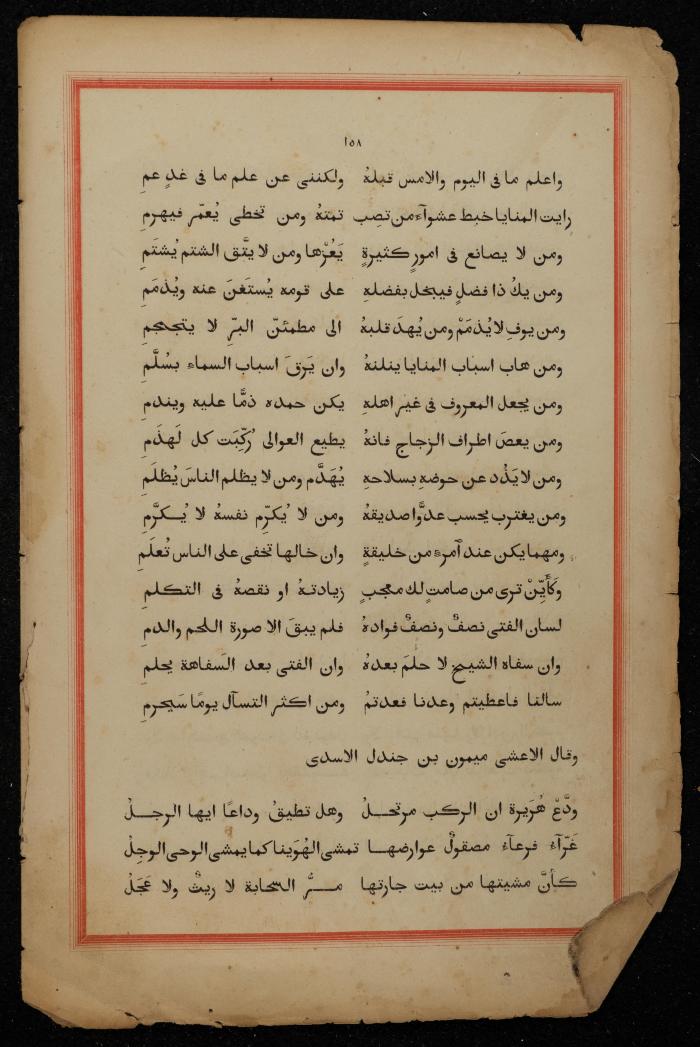 ١٥٨
واعلم ما فى اليوم والامس قبلهُ ولكننى عن علم ما فى غدٍ عمِ
رايت المنايا خبط عشوآء من تصِب تمتهُ ومن تخطى يُعمّر فيهرمِ
ومن لا يصانع فى امورٍ كثيرةٍ يَعُزْها ومن لا يتَّق الشتم يُشتمِ
ومن يكُ ذا فضلٍ فيبخل بفضلهِ على قومه يُستَغنَ عنه ويُذمَمِ
ومن يوفِ لا يُذمَمْ ومن يُهدَ قلبهُ الى مطمئنّ البرِّ لا يتجمجمِ
ومن هاب اسباب المنايا ينلنهُ وان يَرقَ اسباب السماء بسُلَّمِ
ومن يجعل المعروف فى غير اهلهِ يكن حمده ذمًّا عليه ويندمِ
ومن يعصَ اطراف الزجاج فانهُ يطيع العوالى رُكِّبَت كل لَهذَمِ
ومن لا يَذُد عن حوضهِ بسلاحهِ يُهَدَّم ومن لا يظلم الناسَ يُظلَمِ
ومن يغترب يحسب عدوًّا صديقهُ ومن لا يُكرِّم نفسهُ لا يُكرَّمِ
ومهما يكن عند آمرء من خليقةٍ وان خالها تخفى على الناس تُعلَمِ
وكَأَيِّنْ ترى من صامتٍ لك معجبٍ زيادتهُ او نقصهُ فى التكلمِ
لسان الفتى نصفٌ ونصفٌ فوادهُ فلم يبقَ الا صورة اللحم والدمِ
وان سفاه الشيخ لا حلمَ بعدهُ وان الفتى بعد السَفاهة يحلمِ
سالنا فاعطيتم وعدنا فعدتمُ ومن اكثر التسآل يومًا سَيحرمِ
وقال الاعشى ميمون بن جندل الاسدى
ودَّعْ هُرَيرة ان الركب مرتحلُ وهل تطيقُ وداعًا ايها الرجلُ
غَرّآءُ فرعآء مصقولٌ عوارضها تمشى الهُوَينا كما يمشى الوحى الوجِلُ
كأنَّ مشيتها من بيت جارتها مرُّ السحابة لا ريثٌ ولا عَجَلُ